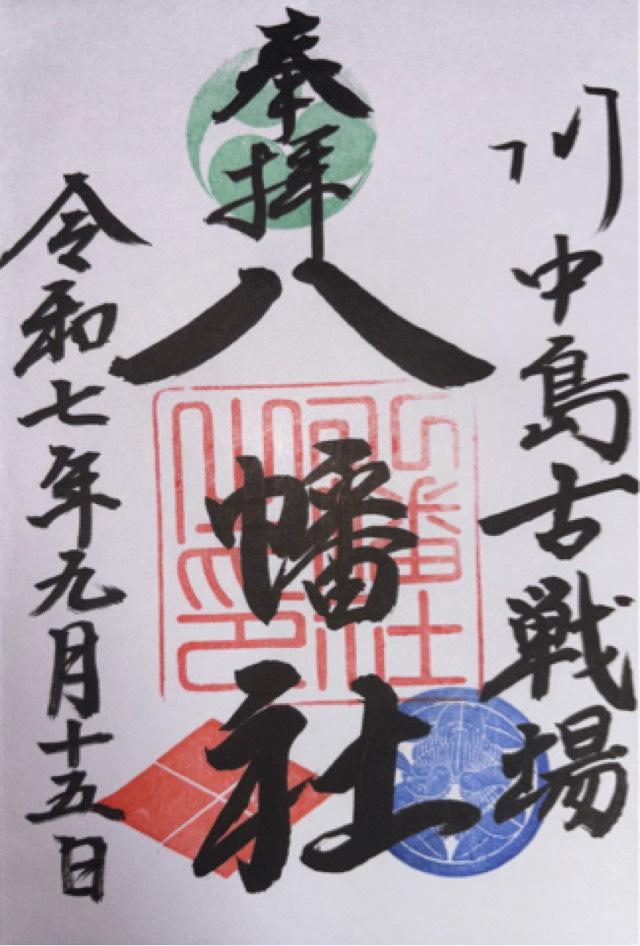 川中島古戦場
奉拝
八幡社
令和七年九月十五日